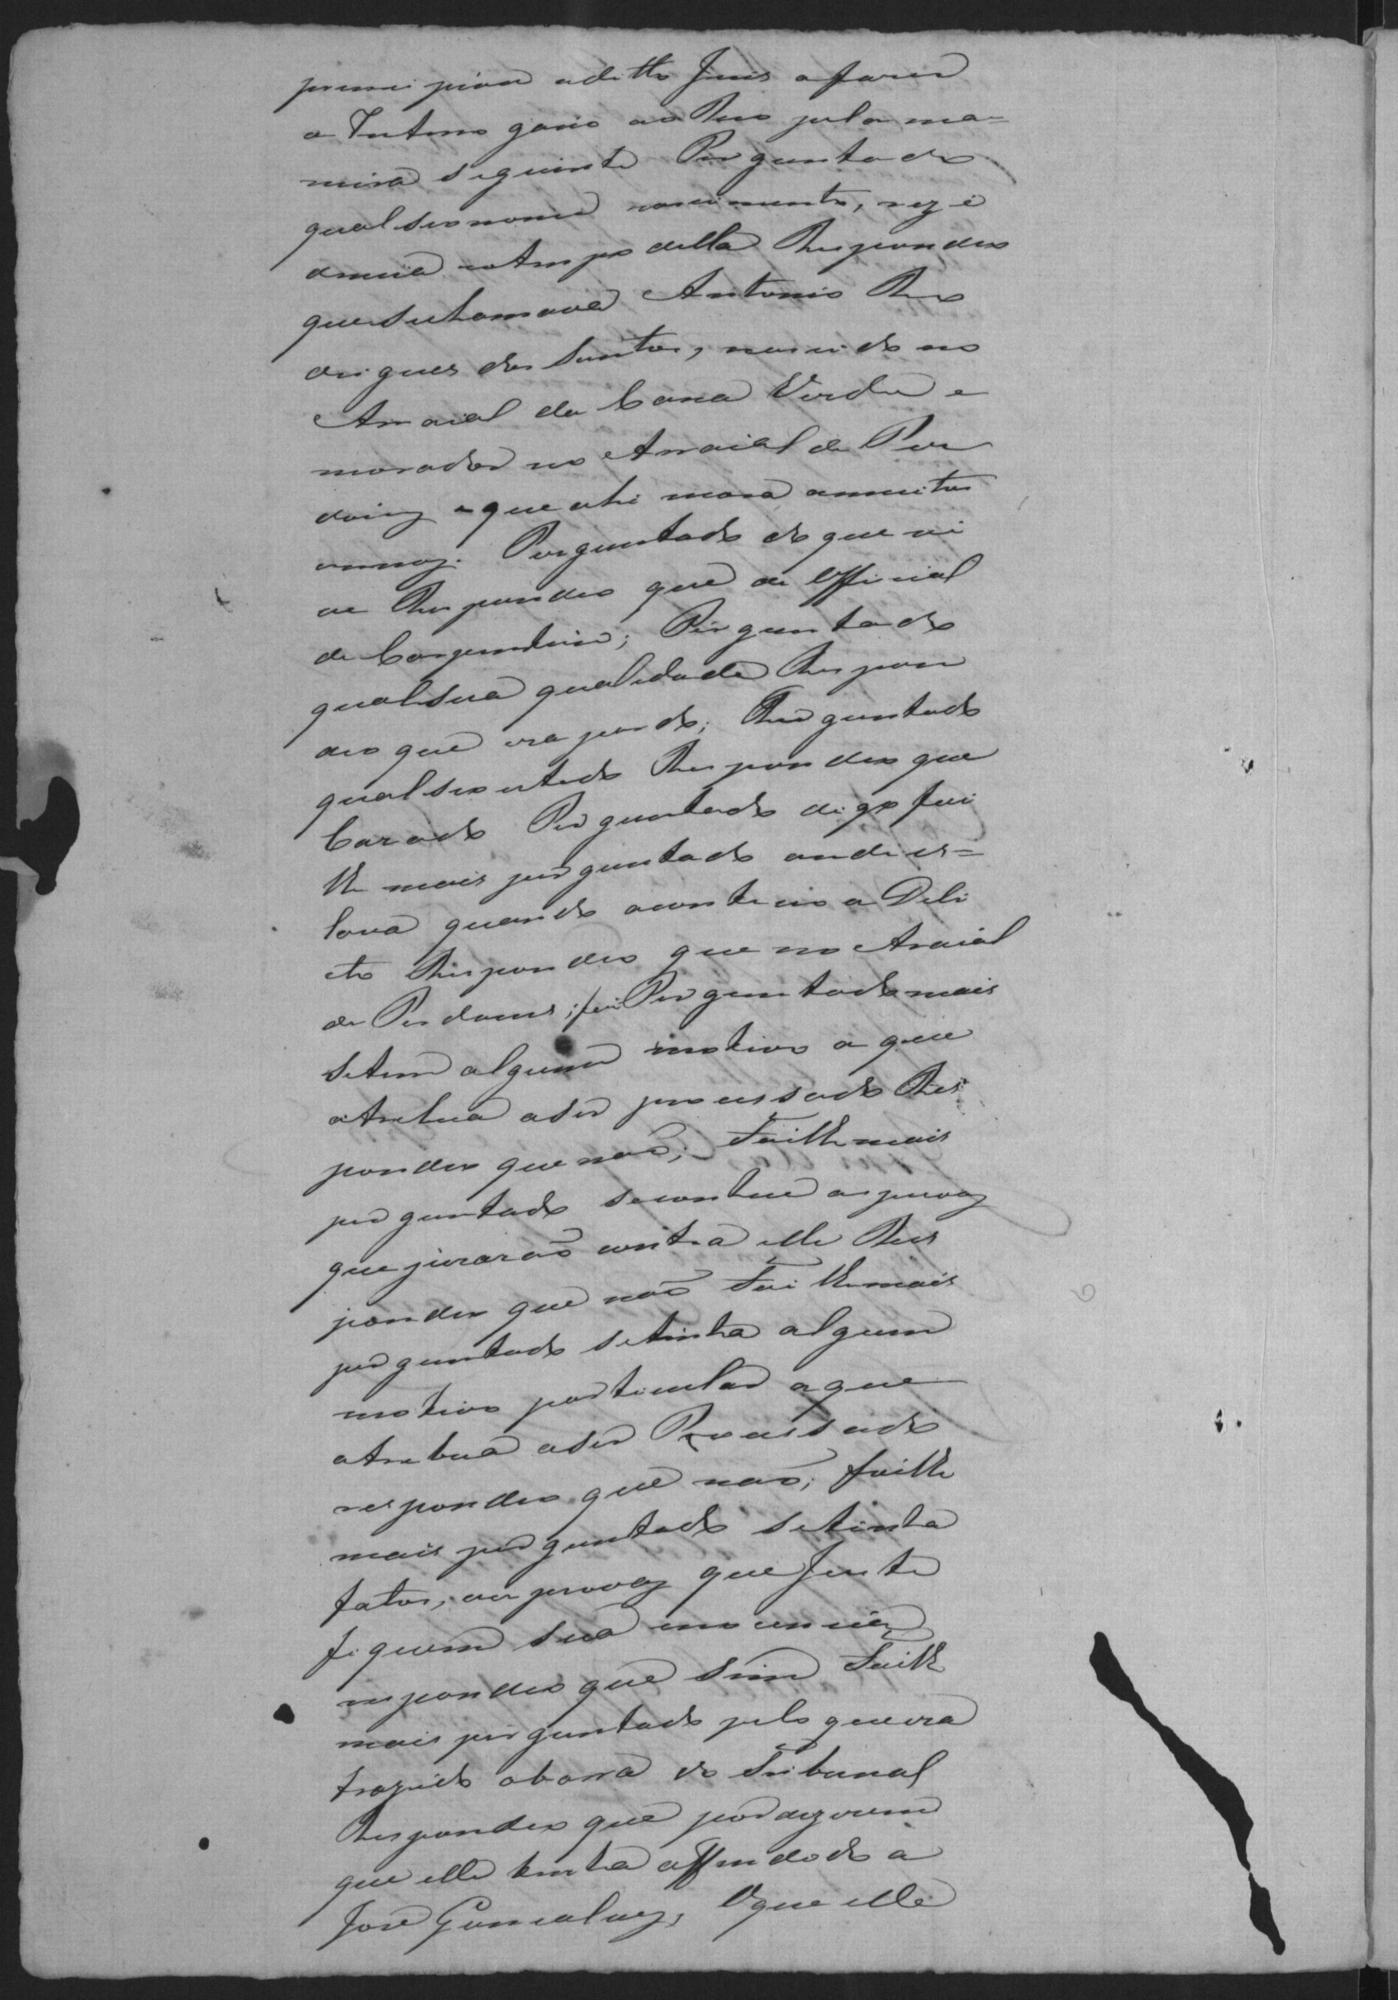 principiou o ditto Juis afazer
o Interro gario ao Reo pela ma=
neira seguinte Perguntado
qual seo nome nascimento, rezi
dencia eotempo della Respondeo
que sechamava Antonio Ro
drigues dos Santos, nascido no
Arraial da Cana Verde e
morador no Arraial de Per
doins e que ahi mora amuitos
annos. Perguntado do que vi
ve Respondeo que de Official
de Carpinteiro; Perguntado
qual sua qualidade Respon
deo que era pardo; Perguntado
qual seo estado Respondeo que
Cazado Perguntado digo foi
lhe mais perguntado onde es=
tava quando aconteceo o Deli
cto Respondeo que no Araial
de Perdoens; foi Perguntado mais
setem algum motivo a que
atrebua aser processado Res
pondeo que não; Foilhe mais
perguntado seconhece as provas
que jurarão contra elle Res
pondeo que não Foi lhe mais
perguntado setinha algum
motivo particular aque
atrebua aser Processado
respondeo que não; foilhe
mais perguntado setinha
fatos, ou provas que Juste
fiquem sua inocencia
respondeo que sim Foilhe
mais perguntado pelo que era
trazido abarra do Tribunal
Respondeo que por dizerem
que elle tinha offendido a
José Gonçalves, Eque elle